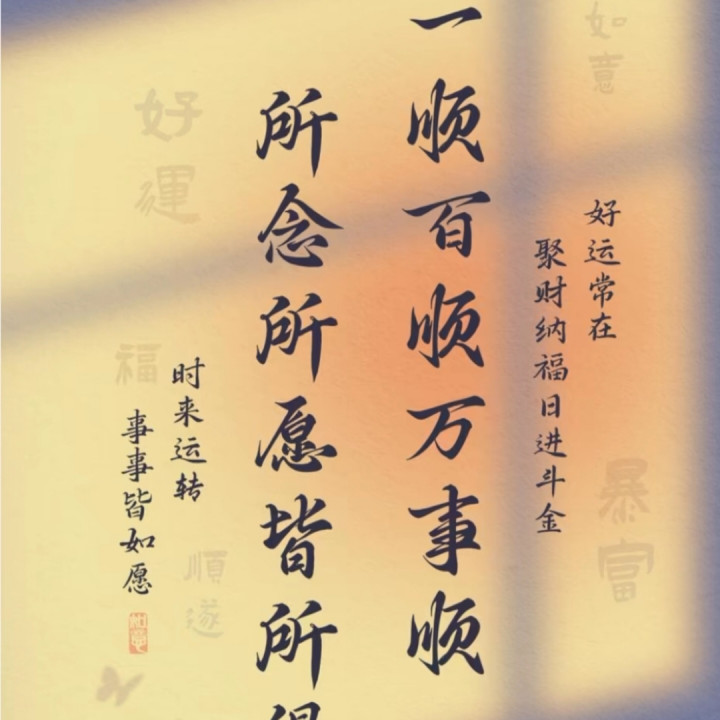 如意
好运常在
聚财纳福日进斗金
暴富
一顺百顺万事顺
所念所愿皆所得
时来运转
事事皆如愿
好運
福
順遂